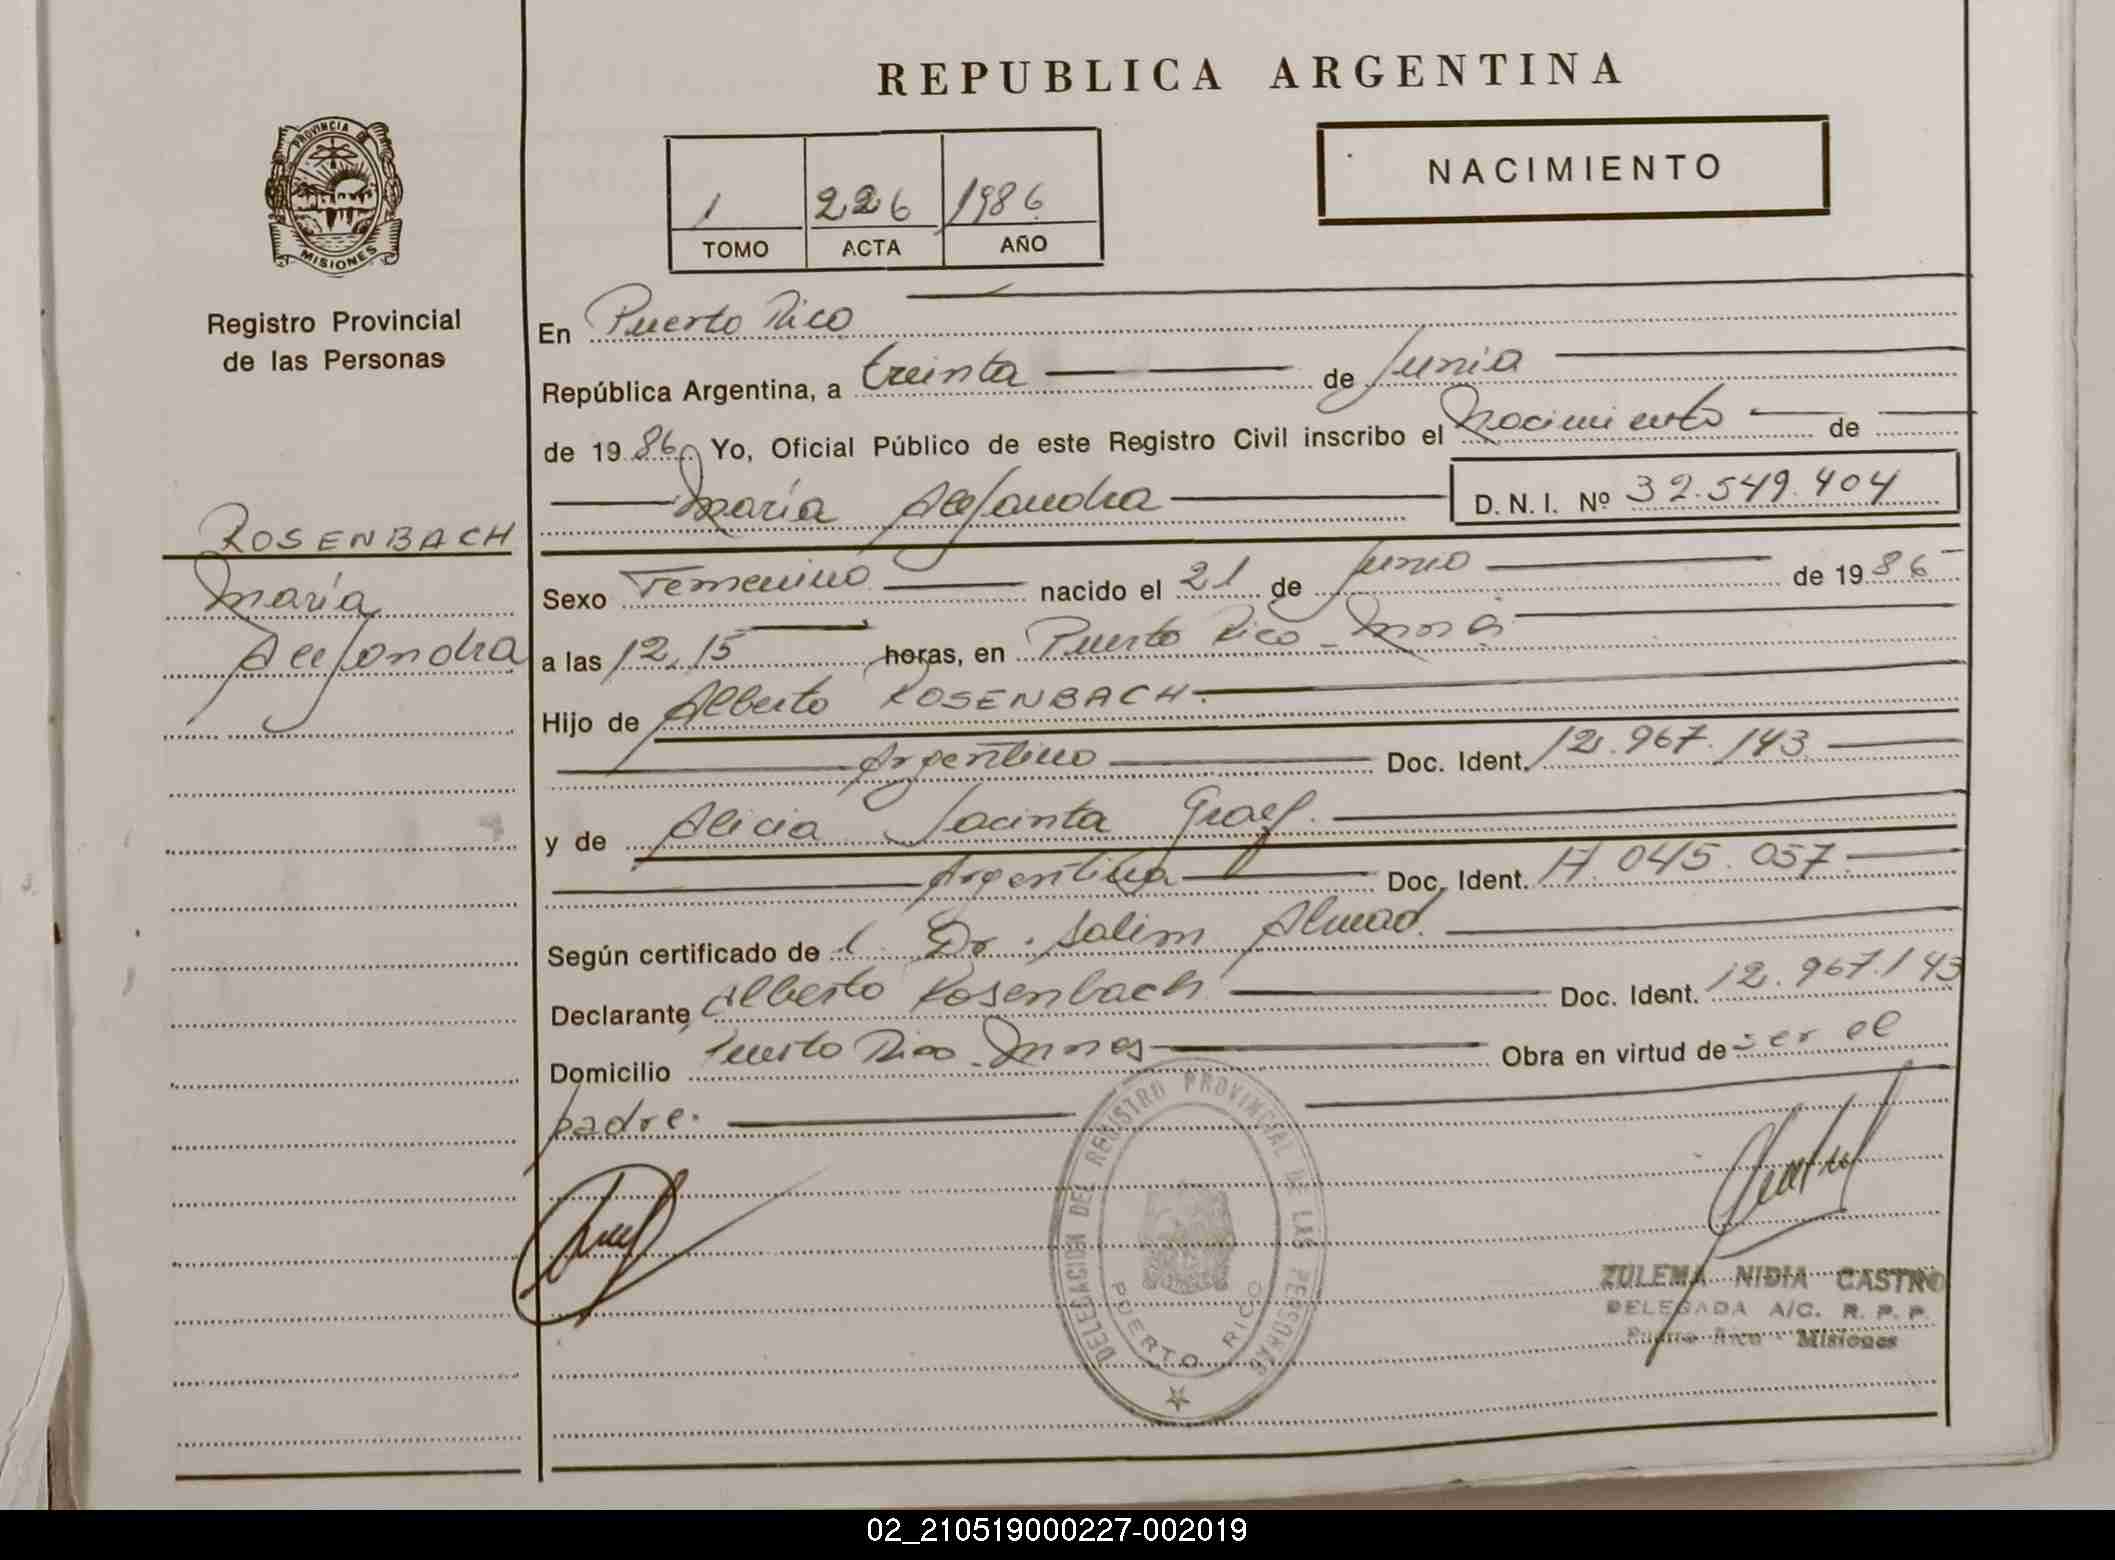 REPUBLICA ARGENTINA
PROVINCIA DE
MISIONES
Registro Provincial
de las Personas
NACIMIENTO
1 226 1986
TOMO ACTA AÑO
En Puerto Rico
República Argentina, a treinta de Junio
de 1986 Yo, Oficial Público de este Registro Civil inscribo el Nacimiento de
María Alejandra D. N. I. Nº 32.549.404
ROSENBACH
María
Alejandra
Sexo Femenino nacido el 21 de Junio de 1986
a las 12,15 horas, en Puerto Rico -
Hijo de Alberto ROSENBACH.
Argentino Doc. Ident. 12.967.143
y de Alicia Jacinta Graef.
Argentina Doc. Ident. 17.045.057
Según certificado de l Dr. Salim
Declarante Alberto Rosenbach Doc. Ident. 12.967.143
Domicilio Puerto Rico - Obra en virtud de ser el
padre.
DELEGACION DEL REGISTRO PROVINCIAL DE LAS PERSONAS
PUERTO RICO
ZULEMA NIDIA CASTRO
DELEGADA A/C. R. P. P.
Puerto Rico - Misiones
02_210519000227-002019